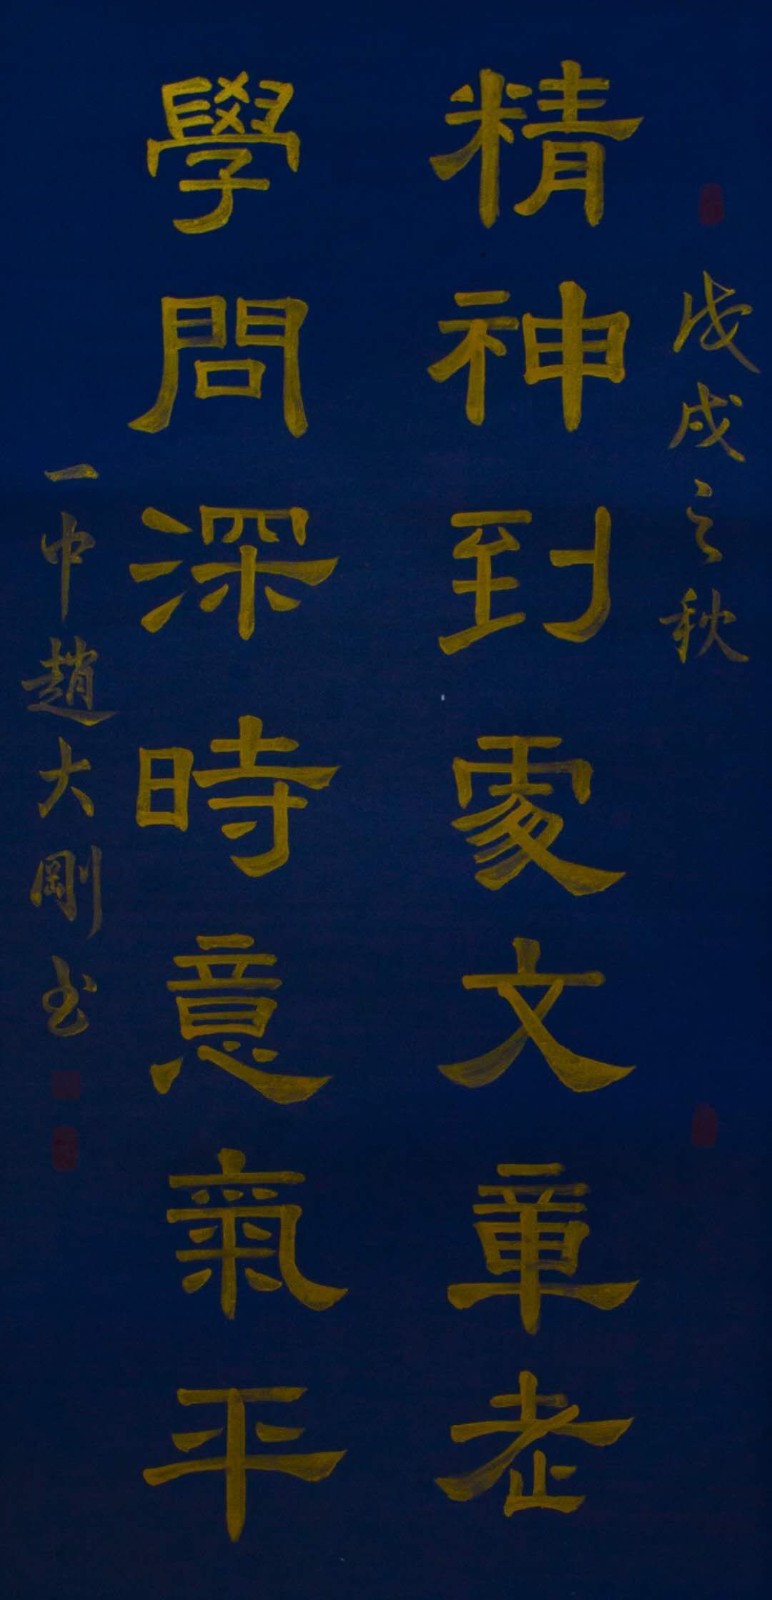 戊戌之秋
精神到處文章老
學問深時意氣平
一中趙大剛書